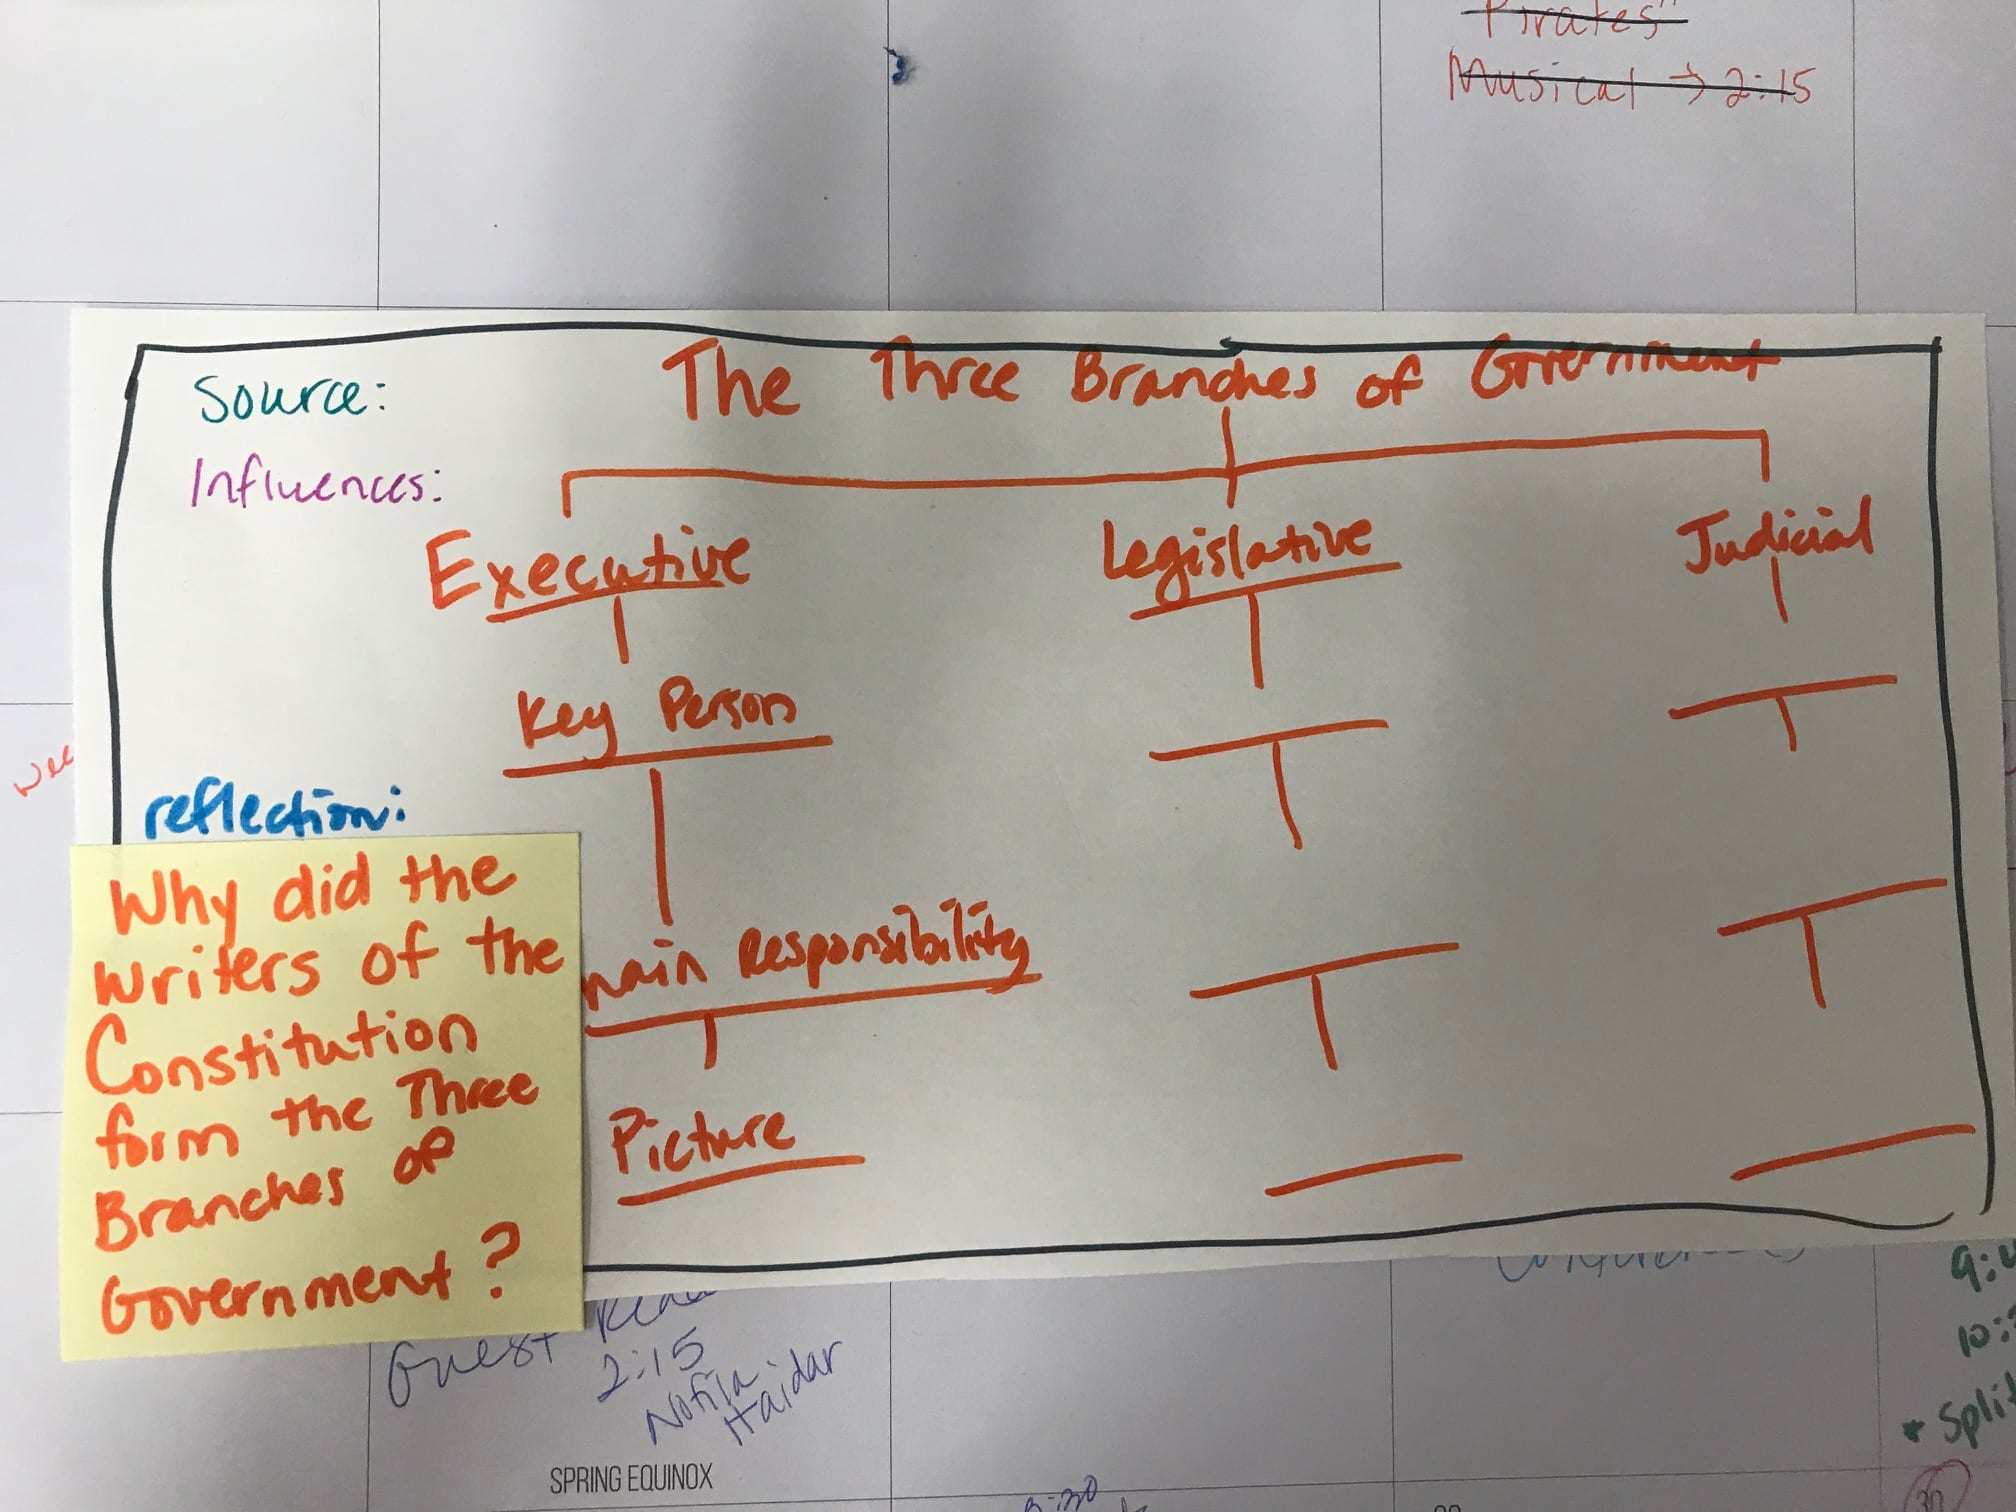 Pirates"
Musical → 2:15
Source:
The Three Branches of Government
Influences:
Executive
Legislative
Judicial
Key Person
reflection:
Why did the
writers of the
Constitution
form the Three
Branches of
Government?
main Responsibility
Picture
Guest
2:15
Haidar
SPRING EQUINOX
10:
* Split